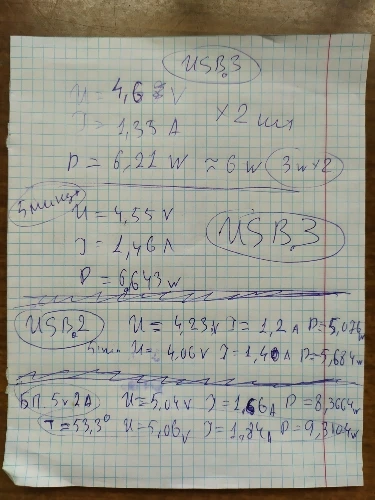 USB.3
U = 4,68 V
I = 1,33 A ×2 шт
P = 6,21 W ≈ 6 W 3W×2
5 минут
U = 4,55 V
I = 1,46 A USB.3
P = 6,643 W
USB.2 U = 4,23 V I = 1,2 A P = 5,076 W
5 мин U = 4,06 V I = 1,40 A P = 5,684 W
БП. 5V 2A U = 5,04 V I = 1,66 A P = 8,3664 W
T = 53,3° U = 5,06 V I = 1,84 A P = 9,3104 W